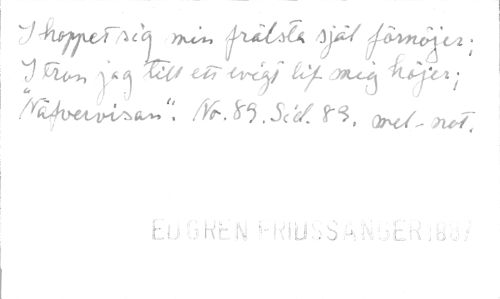 I hoppet sig min frälsta själ förnöjer;
I tron jag till ett evigt lif mig höjer;
"Näfvervisan". No. 89. Sid. 89. mel-not.
EDGREN FRIDSSÅNGER 1887